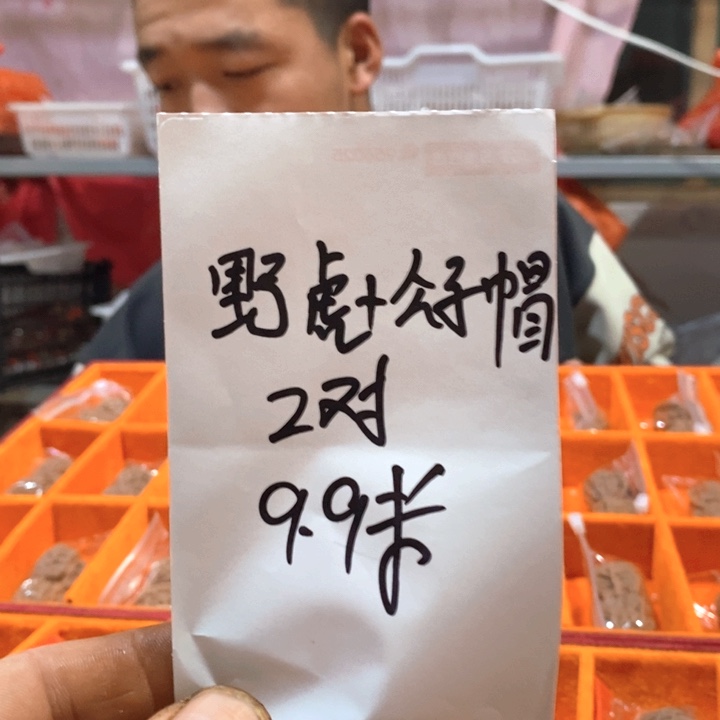 野虎+公子帽
2对
9.9米